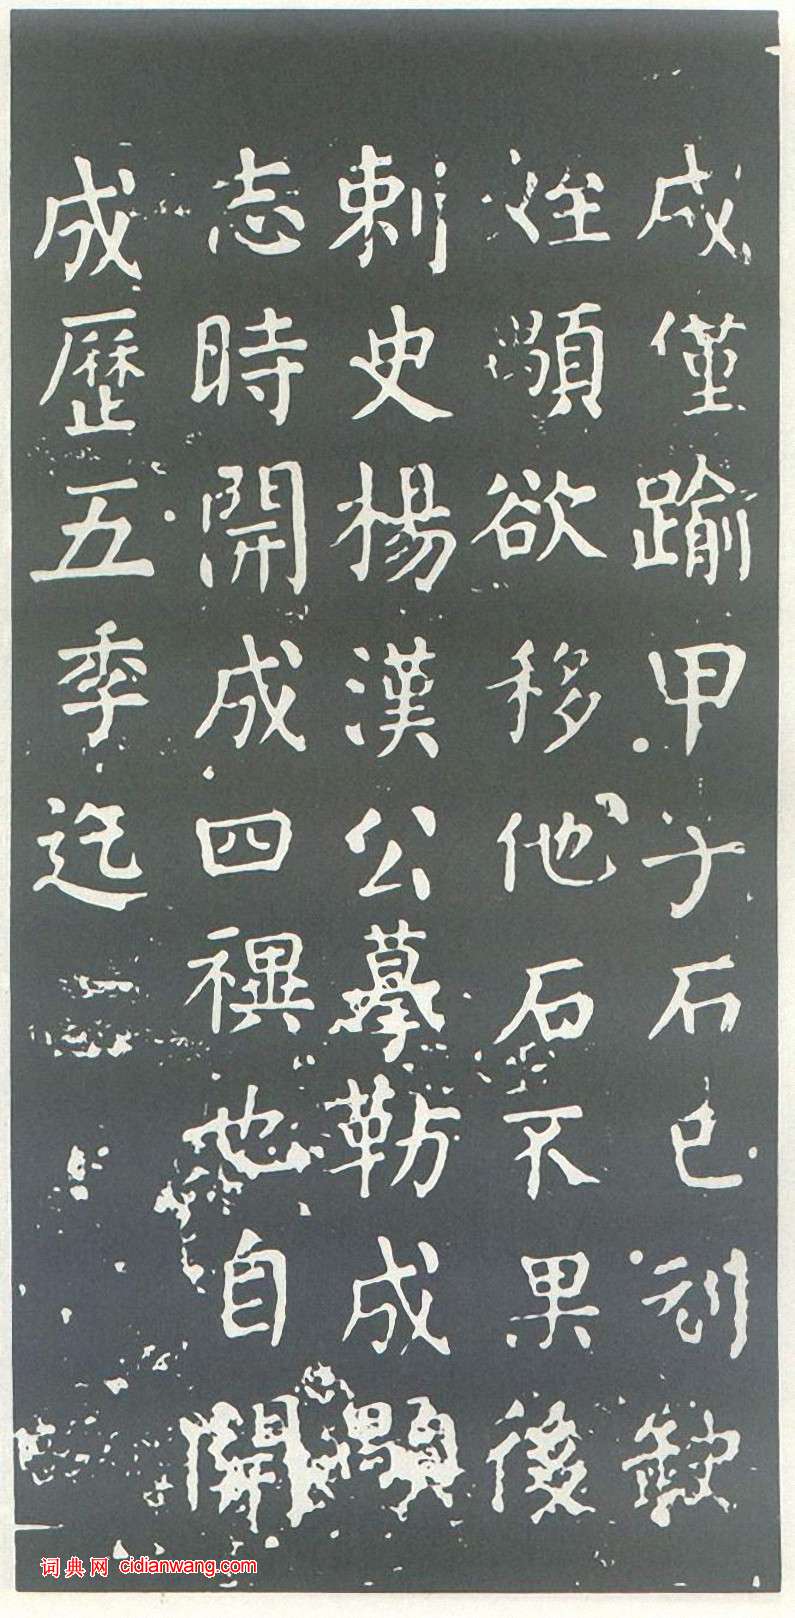 成僅踰甲子石已刓缺
姪顒欲移他石不果後
刺史楊漢公摹勒成顒
志時開成四禩也自開
成歷五季迄
词典网 cidianwang.com